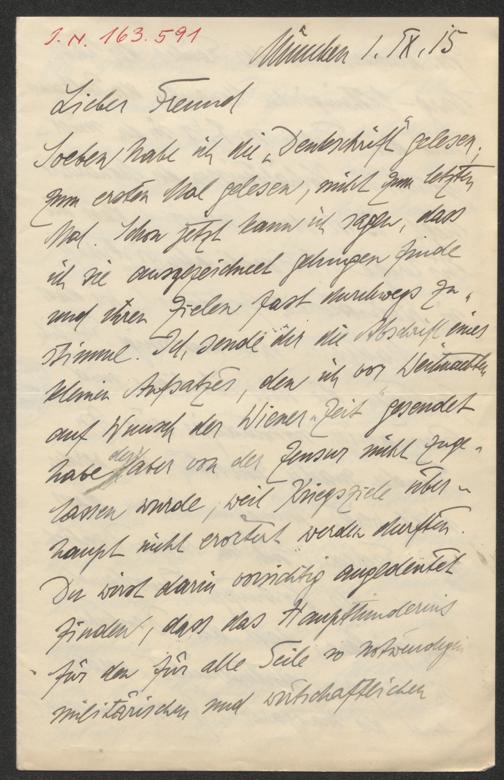 J.N. 163.591
München 1. IX. 15
Lieber Freund
Soeben habe ich die „Denkschrift" gelesen,
zum ersten Mal gelesen, nicht zum letzten
Mal. Schon jetzt kann ich sagen, dass
ich sie ausgezeichnet gelungen finde
und ihren Zielen fast durchwegs zu-
stimme. Ich sende dir die Abschrift eines
kleinen Aufsatzes, den ich vor Weihnachten
auf Wunsch der Wiener „Zeit" gesendet
habe der aber von der Zensur nicht zuge-
lassen wurde, weil Kriegsziele über-
haupt nicht erörtert werden durften.
Du wirst darin vorsichtig angedeutet
finden, dass das Haupthindernis
für den für alle Teile so notwendigen
militärischen und wirtschaftlichen